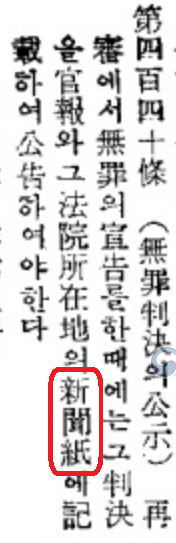 第四百四十條 （無罪判決의公示） 再
審에서無罪의宣告를한때에는그判決
을官報와그法院所在地의新聞紙에記
載하여公告하여야한다